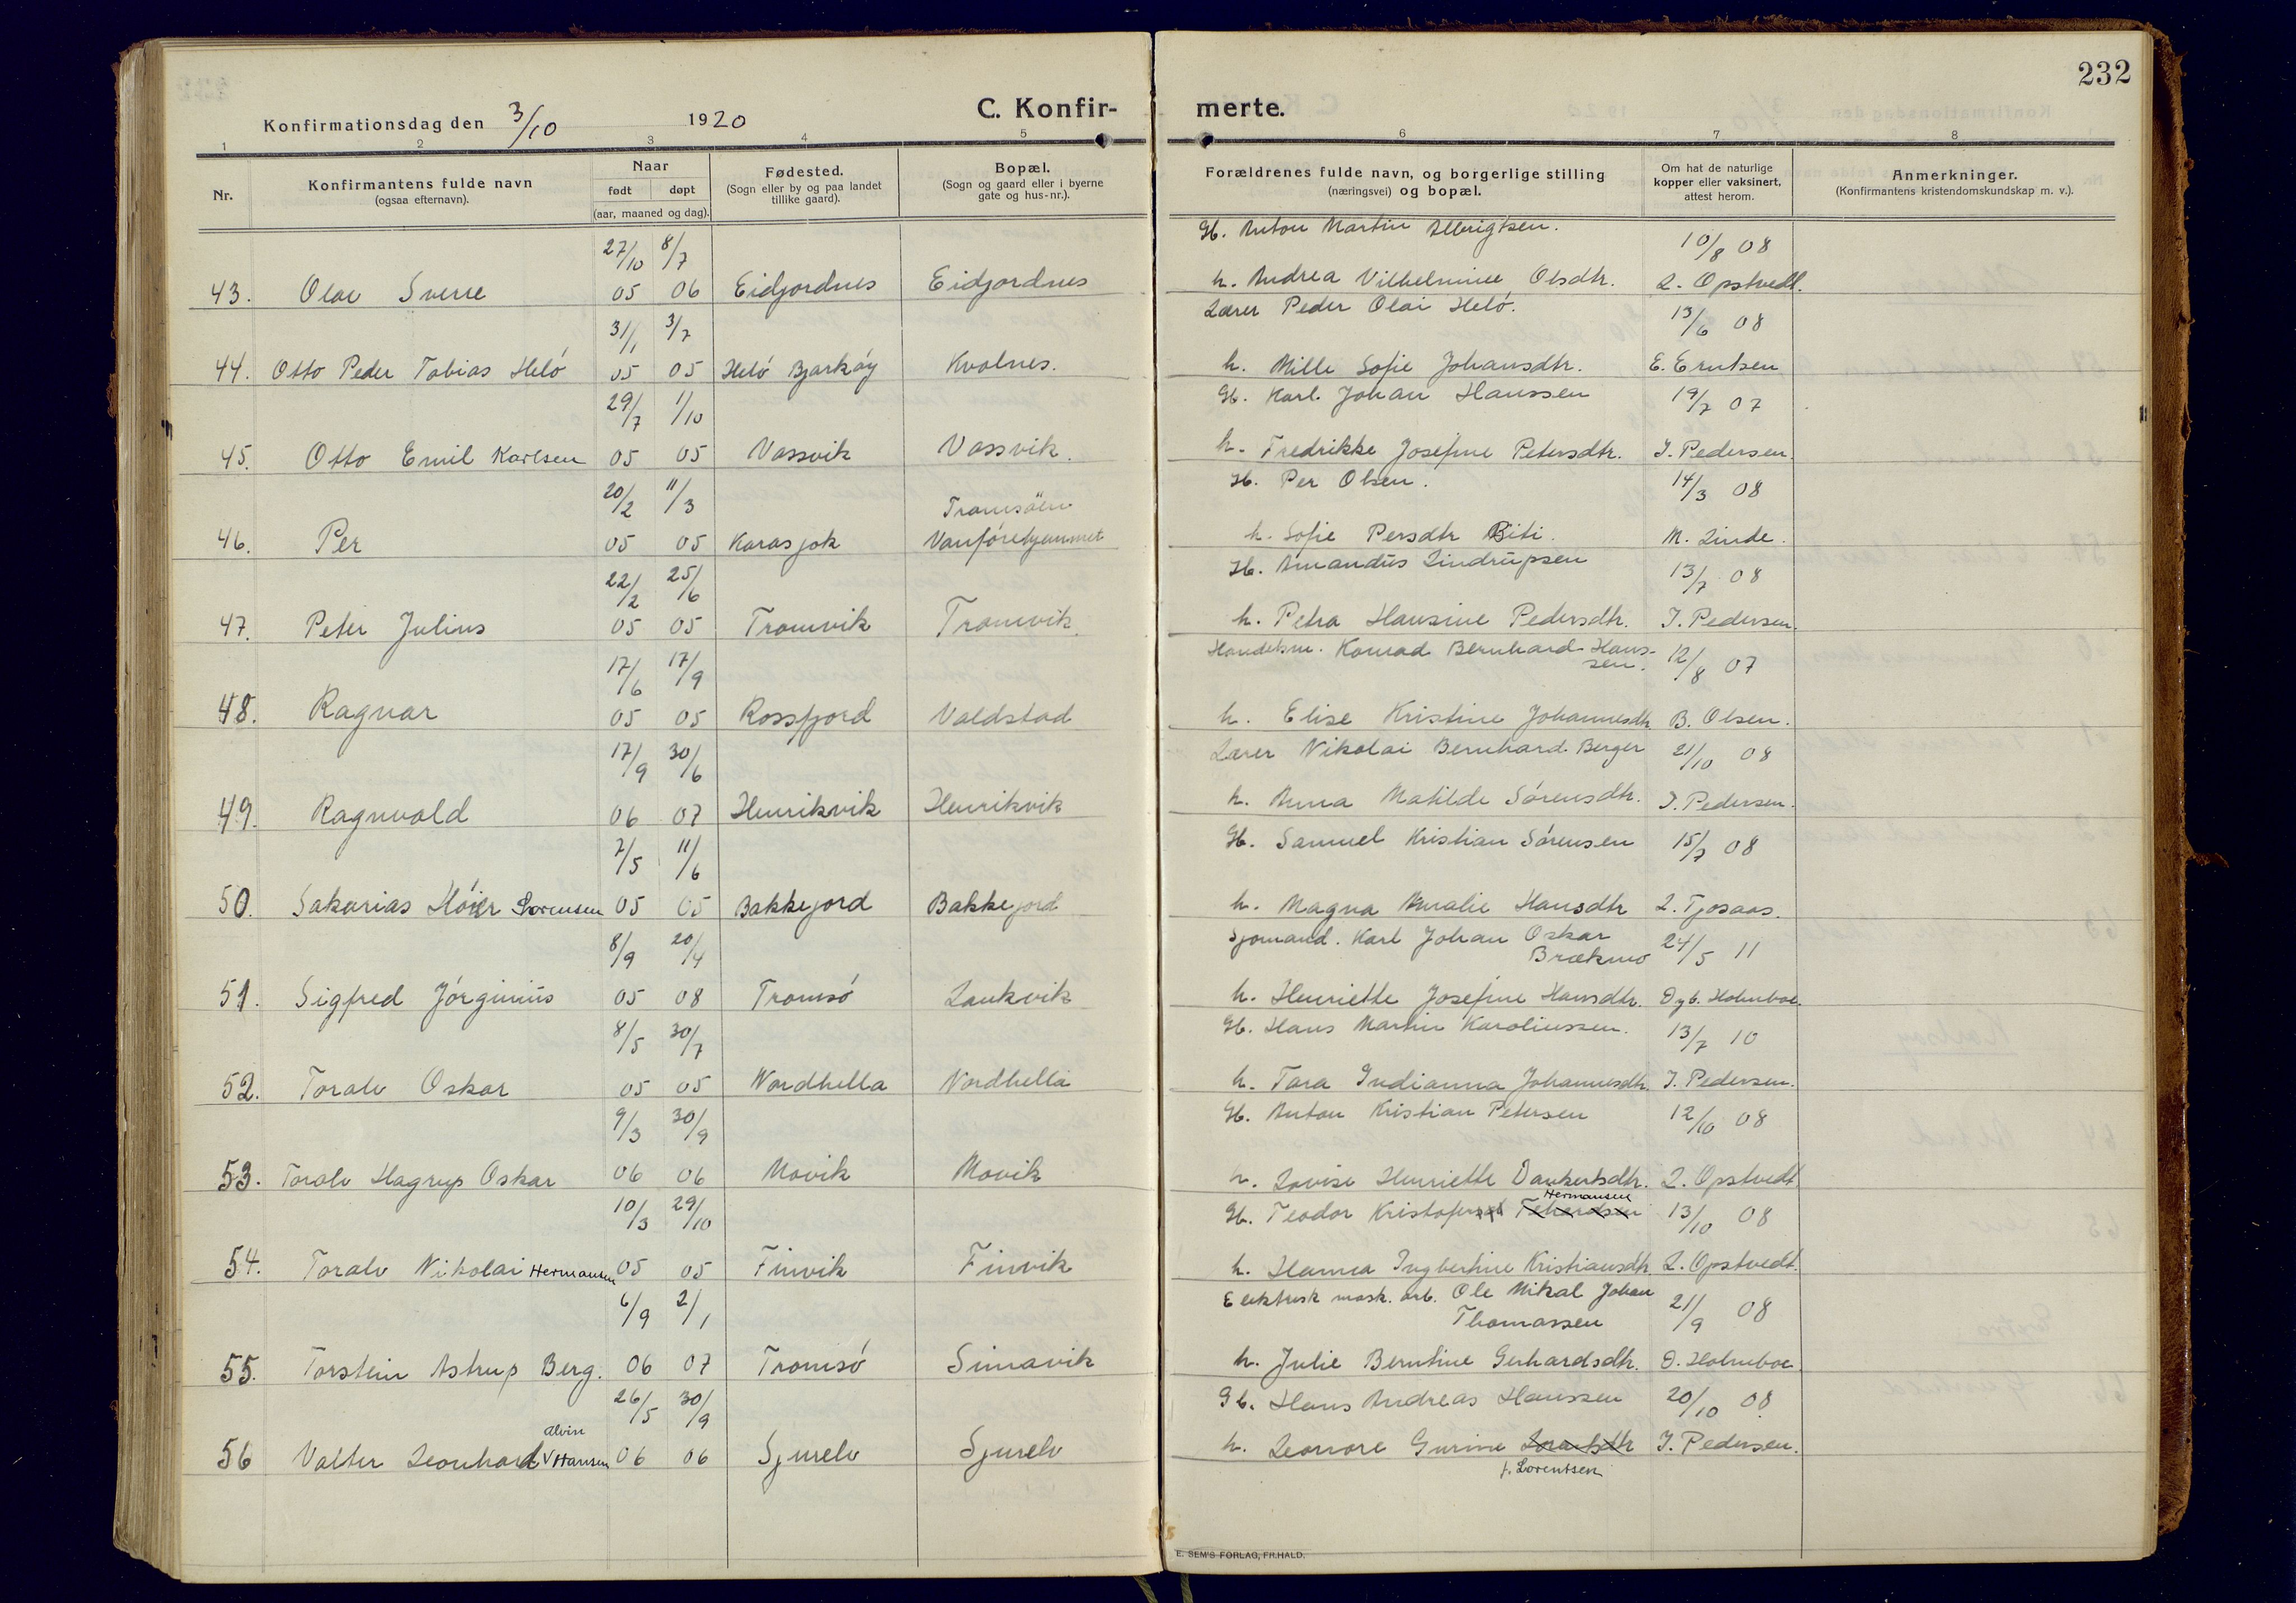 232
Konfirmationsdag den 3/10 1920 C. Konfir- merte.
1 2 3 4 5 6 7 8
Nr. Konfirmantens fulde navn (ogsaa efternavn). Naar født døpt (aar, maaned og dag). Fødested. (Sogn eller by og paa landet tillike gaard). Bopæl. (Sogn og gaard eller i byerne gate og hus-nr.). Forældrenes fulde navn, og borgerlige stilling (næringsvei) og bopæl. Om hat de naturlige kopper eller vaksinert, attest herom. Anmerkninger. (Konfirmantens kristendomskundskap m. v.).
27/10 8/7 Gb. Anton Martin Albrigtsen. 10/8 08
43. Olav Sverre 05 06 Eidjordnes Eidjordnes h. Andrea Vilhelmine Olsdtr. L. Opstvedt.
31/1 3/7 Lærer Peder Olai Helø. 13/6 08
44. Otto Peder Tobias Helø 05 05 Helø Bjarkøy Kvalnes. h. Mille Sofie Johansdtr. E. Erntsen
29/7 1/10 Gb. Karl Johan Hanssen 19/7 07
45. Otto Emil Karlsen 05 05 Vassvik Vassvik. h. Fredrikke Josefine Petersdtr. J. Pedersen.
20/2 11/3 Tromsöen Gb. Per Olsen. 14/3 08
46. Per 05 05 Karasjok Vanförehjemmet h. Sofie Persdtr Biti. M. Linde.
22/2 25/6 Gb. Amandus Lindrupsen 13/7 08
47. Peter Julius 05 05 Tromvik Tromvik. h. Petra Hansine Pedersdtr. J. Pedersen.
17/6 17/9 Handelsm. Konrad Bernhard Hans-
sen. 12/8 07
48. Ragnar 05 05 Rossfjord Valdstad h. Elise Kristine Johannesdtr. B. Olsen.
17/9 30/6 Lærer Nikolai Bernhard Berger 21/10 08
49. Ragnvald 06 07 Henrikvik Henrikvik h. Anna Matilde Sörensdtr. J. Pedersen.
7/5 11/6 Gb. Samuel Kristian Sörensen 15/7 08
50. Sakarias Höier Sorensen 05 05 Bakkejord Bakkejord h. Magna Amalie Hansdtr L. Tjosaas.
8/9 20/4 Sjömand. Karl Johan Oskar
Brækmo 24/5 11
51. Sigfred Jörginius 05 08 Tromsö Laukvik h. Henriette Josefine Hansdtr. Dyb. Holmboe.
8/5 30/7 Gb. Hans Martin Karoliussen. 13/7 10
52. Toralv Oskar 05 05 Nordhella Nordhella h. Tara Indianna Johannesdtr. J. Pedersen.
9/3 30/9 Gb. Anton Kristian Petersen 12/10 08
53. Toralv Hagrup Oskar 06 06 Movik Movik h. Lovise Henriette Dankertsdtr. L. Opstvedt.
Hermansen
10/3 29/10 Gb. Teodor Kristofer 13/10 08
54. Toralv Nikolai Hermansen 05 05 Finvik Finvik h. Hanna Ingbertine Kristiansdtr. L. Opstvedt.
6/9 2/1 Elektrisk mask. arb. Ole Mikal Johan
Thomassen 21/9 08
55. Torstein Astrup Berg. 06 07 Tromsö Simavik h. Julie Berntine Gerhardsdtr. D. Holmboe.
26/5 30/9 Gb. Hans Andreas Hanssen 20/10 08.
Alvin
56 Valter Leonhard V Hansen 06 06 Sjurelv Sjurelv h. Leonore Gurine Lorentsdtr J. Pedersen.
f. Lorentsen
E. SEM'S FORLAG, FR.HALD.